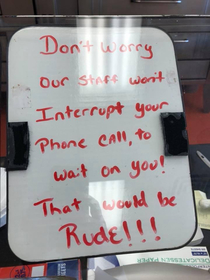 Don't Worry
Our Staff won't
Interrupt your
Phone call, to
wait on you!
That would be
RUDE!!!